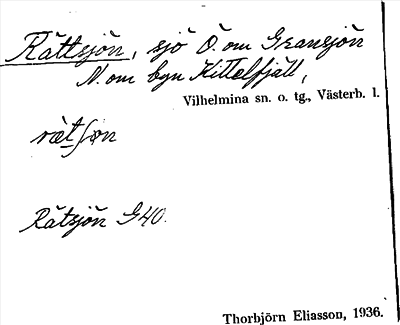 Rättsjön, sjö Ö. om Gransjön
N. om byn Kittelfjäll,
Vilhelmina sn. o. tg., Västerb. l.
Rätsjön G40.
Thorbjörn Eliasson, 1936.